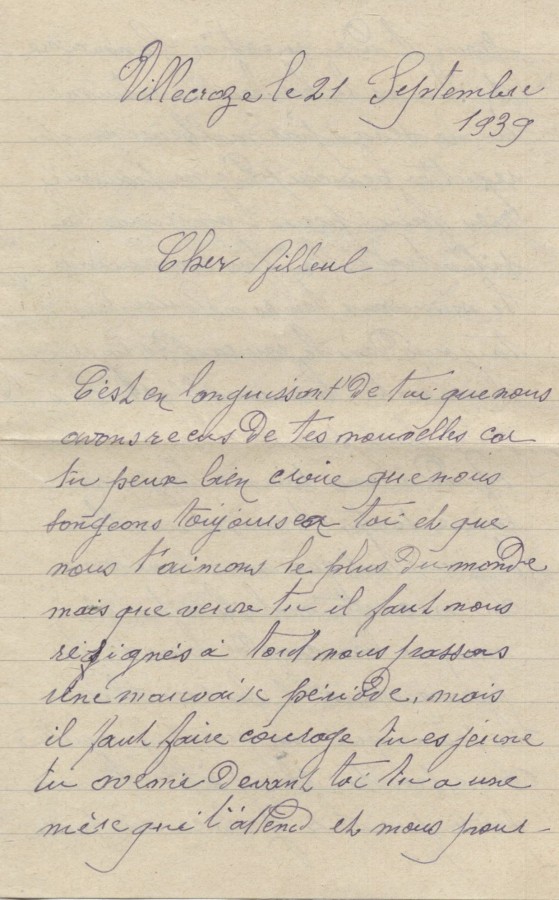 Villecroze le 21 Septembre
1939
Cher filleul
C'est en languissant de toi que nous
avons recus de tes nouvelles car
tu peux bien croire que nous
songeons toujours a toi et que
nous t'aimons le plus du monde
mais que veux tu il faut nous
résignés à tout nous passons
une mauvaise période, mais
il faut faire courage tu es jeune
tu devant toi tu a une
mère qui t'attend et nous pour-